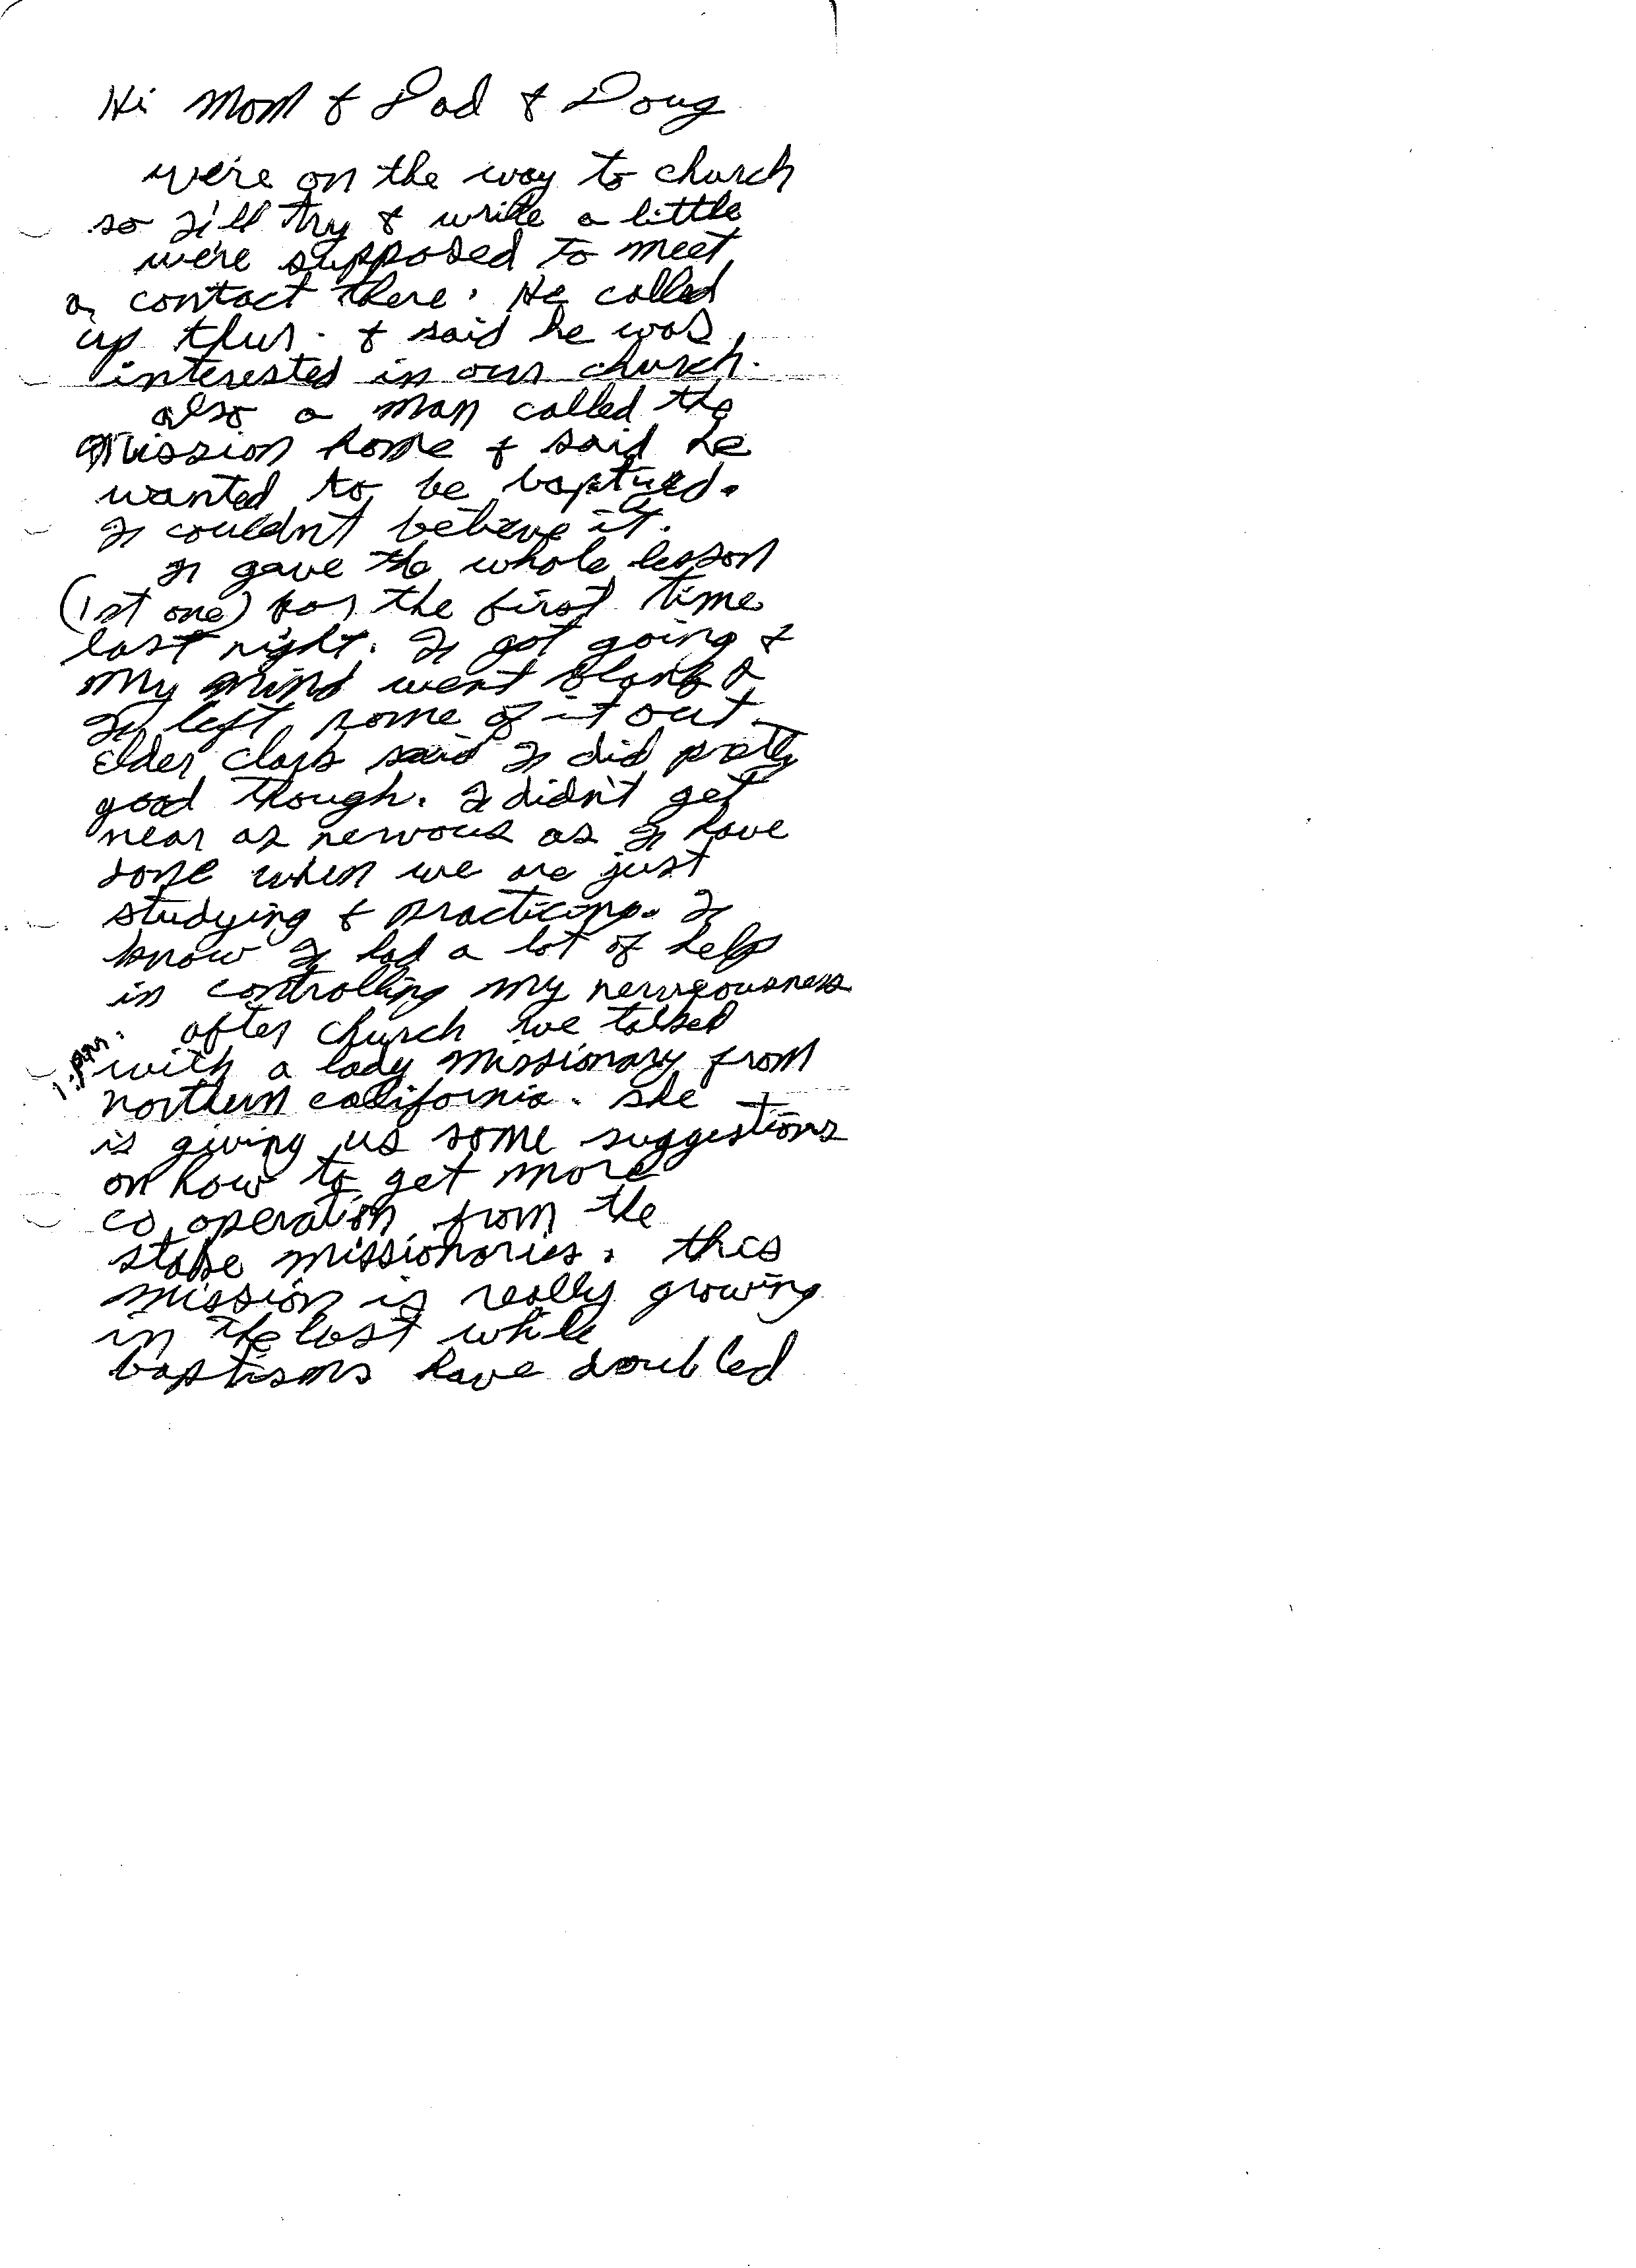 Hi Mom & Dad & Doug
we're on the way to church
so I'll try & write a little
we're supposed to meet
a contact there. He called
up thur. & said he was
interested in our church.
also a man called the
mission home & said he
wanted to be baptized.
I couldn't believe it.
I gave the whole lesson
(1st one) for the first time
last night. I got going &
my mind went blank &
I left some of it out.
Elder Clark said I did pretty
good though. I didn't get
near as nervous as I have
done when we are just
studying & practicing. I
know I had a lot of help
in controlling my nerveousness
1:PM. after church we talked
with a lady missionary from
northern california. she
is giving us some suggestions
on how to get more
co operation from the
stake missionaries. this
mission is really growing
in the last while
baptisms have doubled